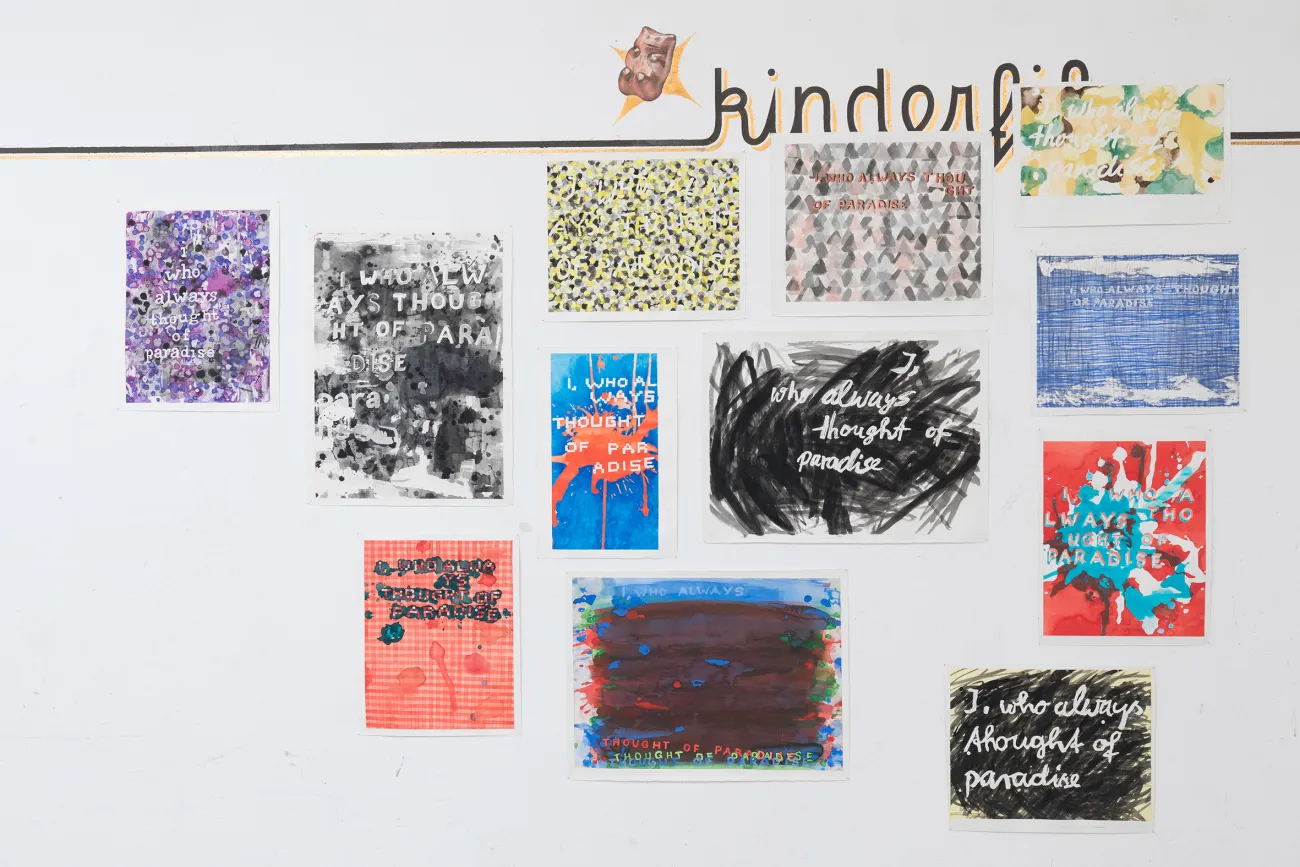 kinderfil
I, who always
thought of
paradise
I, WHO ALWAYS THOU
GHT
OF PARADISE
OF PARADISE
I
who
always
thought
of
paradise
I WHO ALW
AYS THOUG
HT OF PARA
DISE
para
I, WHO ALWAYS THOUGHT
OF PARADISE
I, WHO AL
WAYS
THOUGHT
OF PAR
ADISE
I,
who always
thought of
paradise
I, WHO A
LWAYS THO
UGHT OF
PARADISE
I, WHO ALWA
YS
THOUGHT OF
PARADISE
I, WHO ALWAYS
THOUGHT OF PARADISE
THOUGHT OF PARADISE
I, who always
thought of
paradise